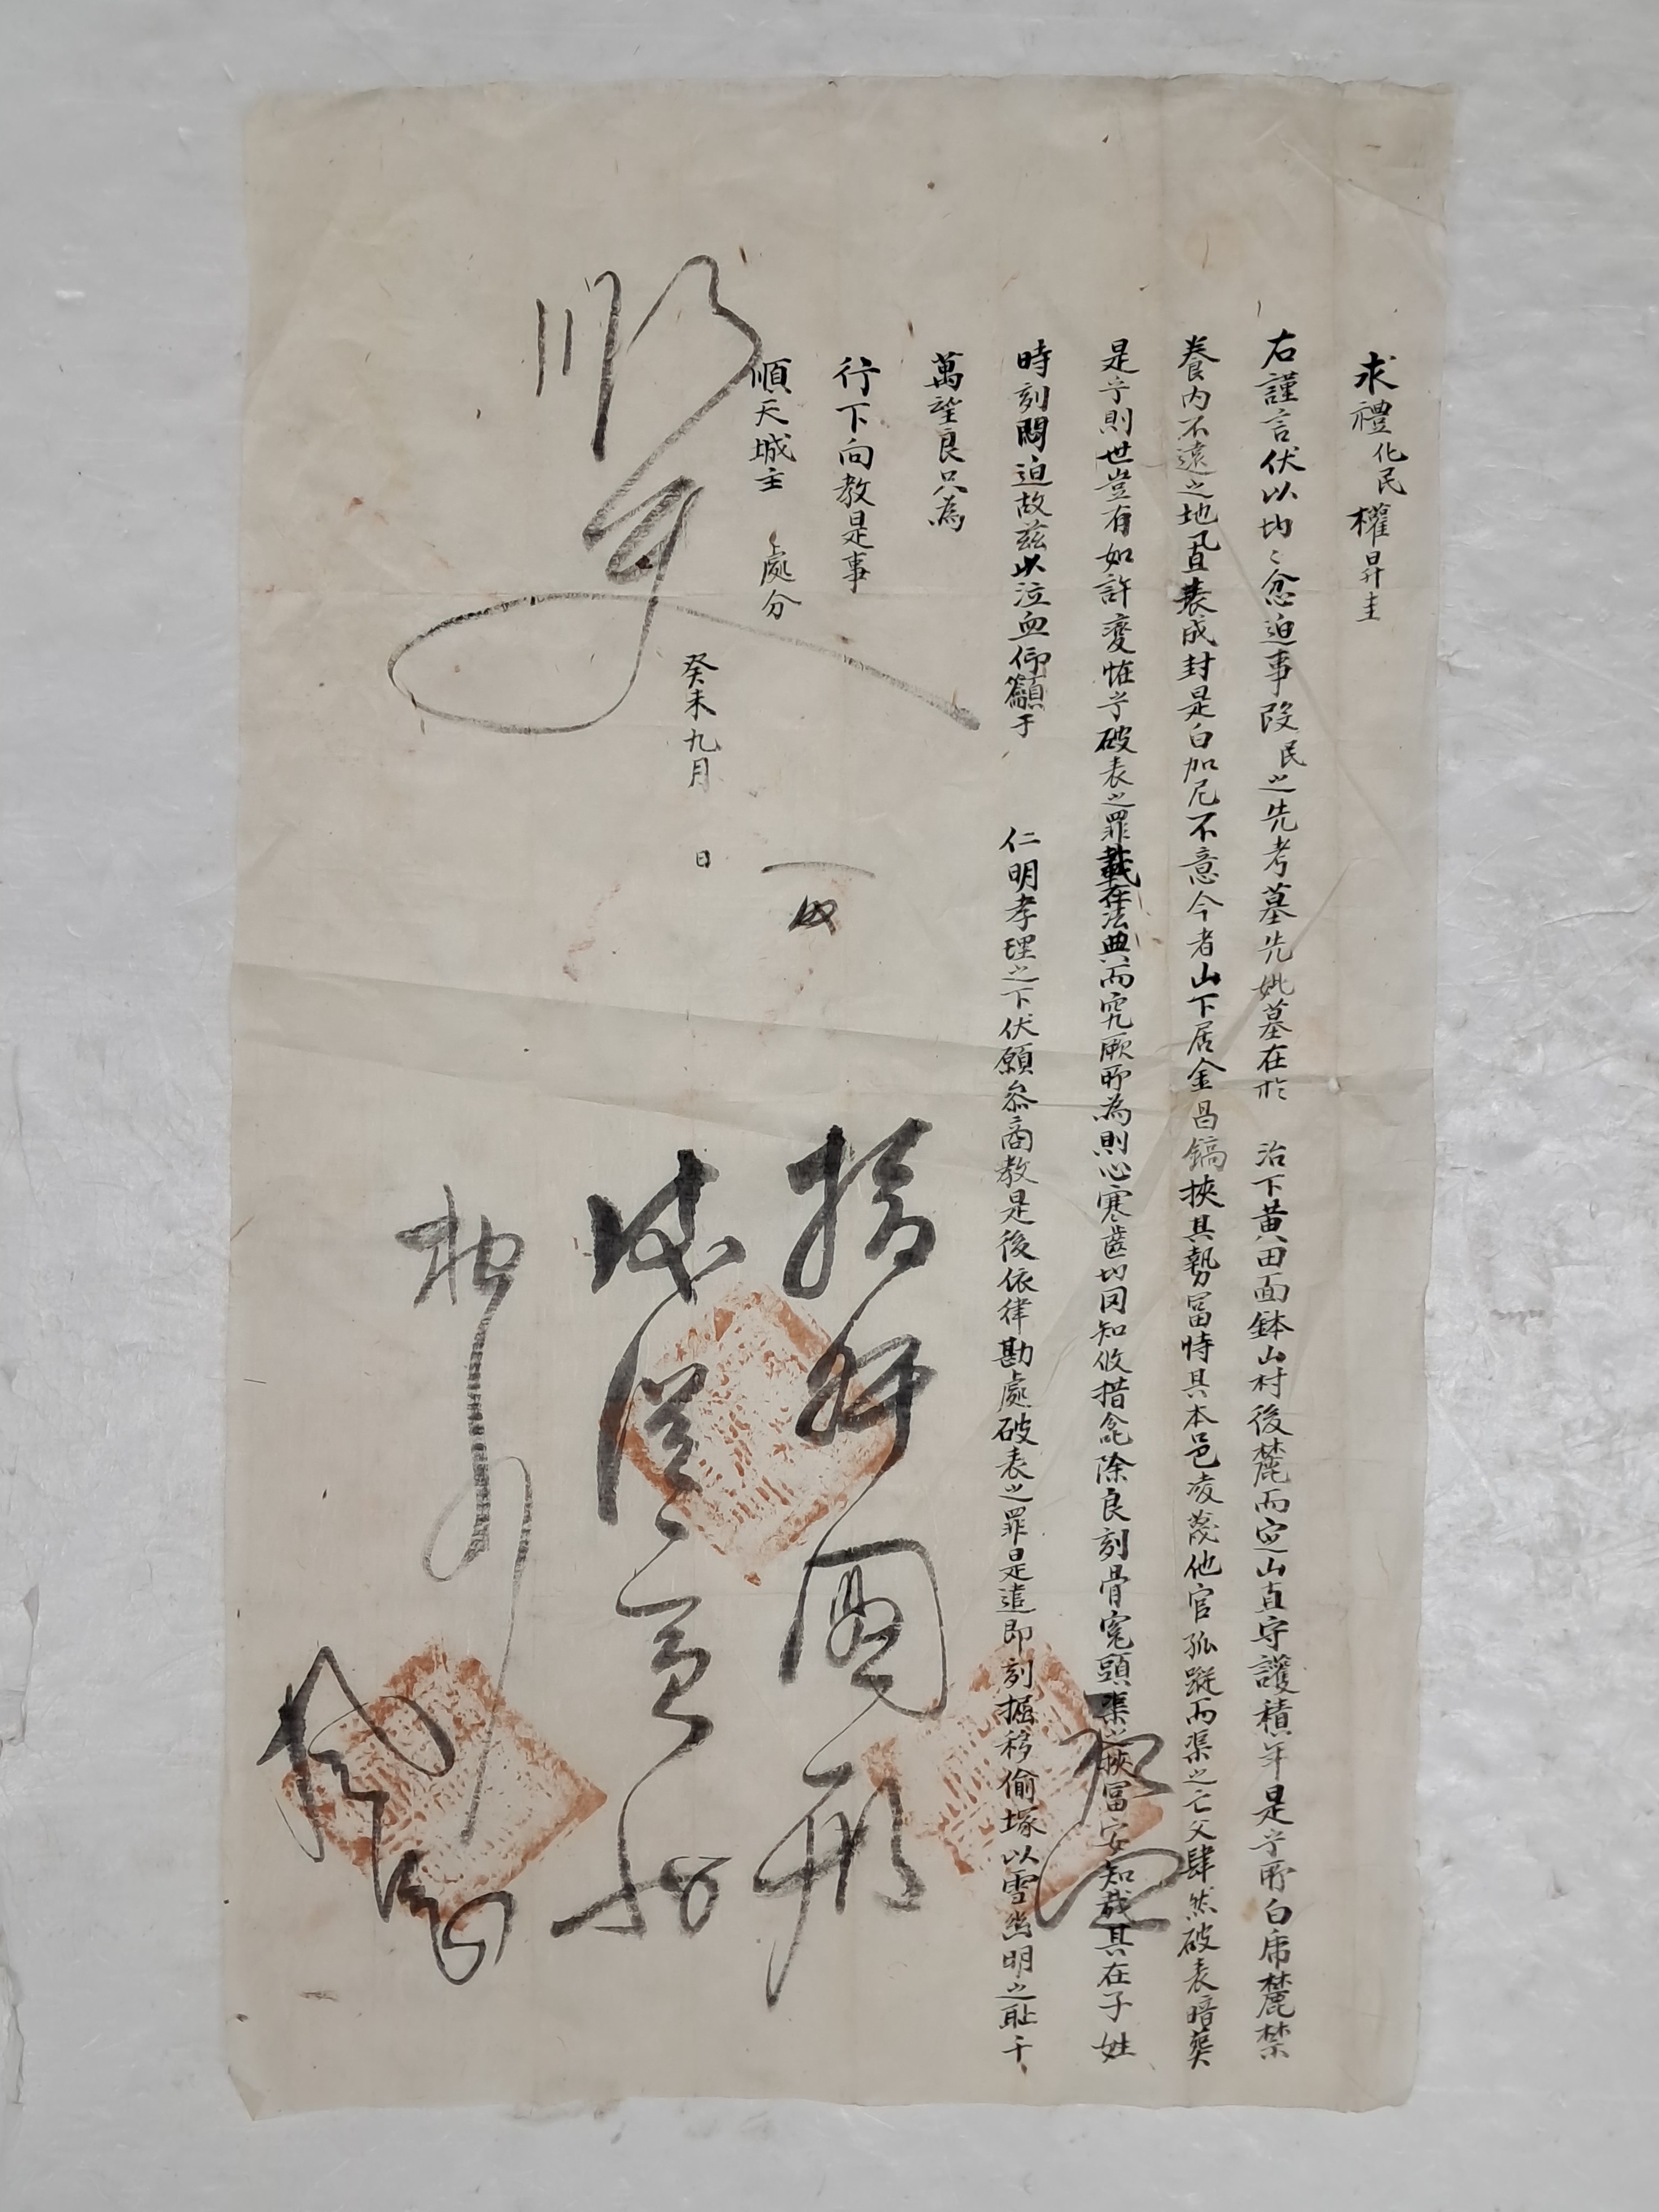 求禮化民權昇圭
右謹言伏以切〻忿迫事段民之先考墓先妣墓在於 治下黃田面鉢山村後麓而定山直守護積年是乎所白虎麓禁
養內不遠之地䂨直表成封是白加尼不意今者山下居金昌鎬挾其勢富恃其本邑凌蔑他官孤蹤而渠之亡父肆然破表暗葬
是乎則世豈有如許變恠乎破表之罪載在法典而究厥所爲則心寒齒切罔知攸措叱除良刻骨寃頭渠之挾富安知哉其在子姓
時刻悶迫故茲以泣血仰籲于 仁明孝理之下伏願參商教是後依律勘處破表之罪是遣卽刻掘移偷塚以雪幽明之恥千
萬望良只爲
行下向教是事
順天城主 處分
癸未九月 日
使
摘奸圖形
以 憑